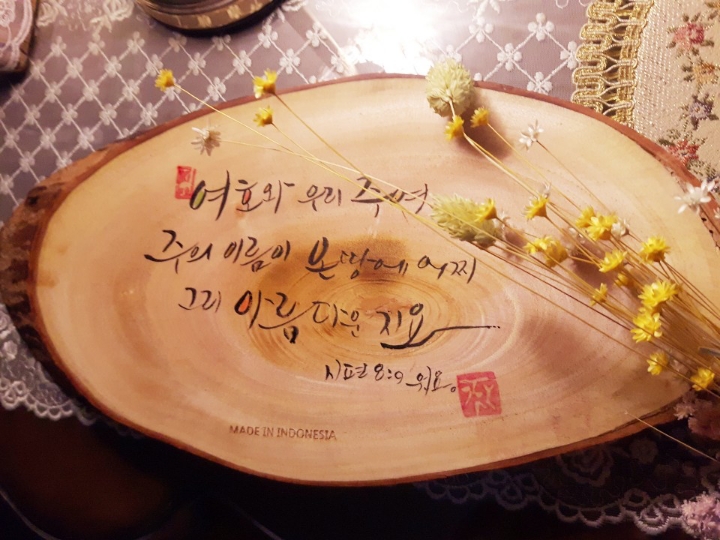 여호와 우리 주여
주의 이름이 온땅에 어찌
그리 아름다운지요
시편 8:9
MADE IN INDONESIA